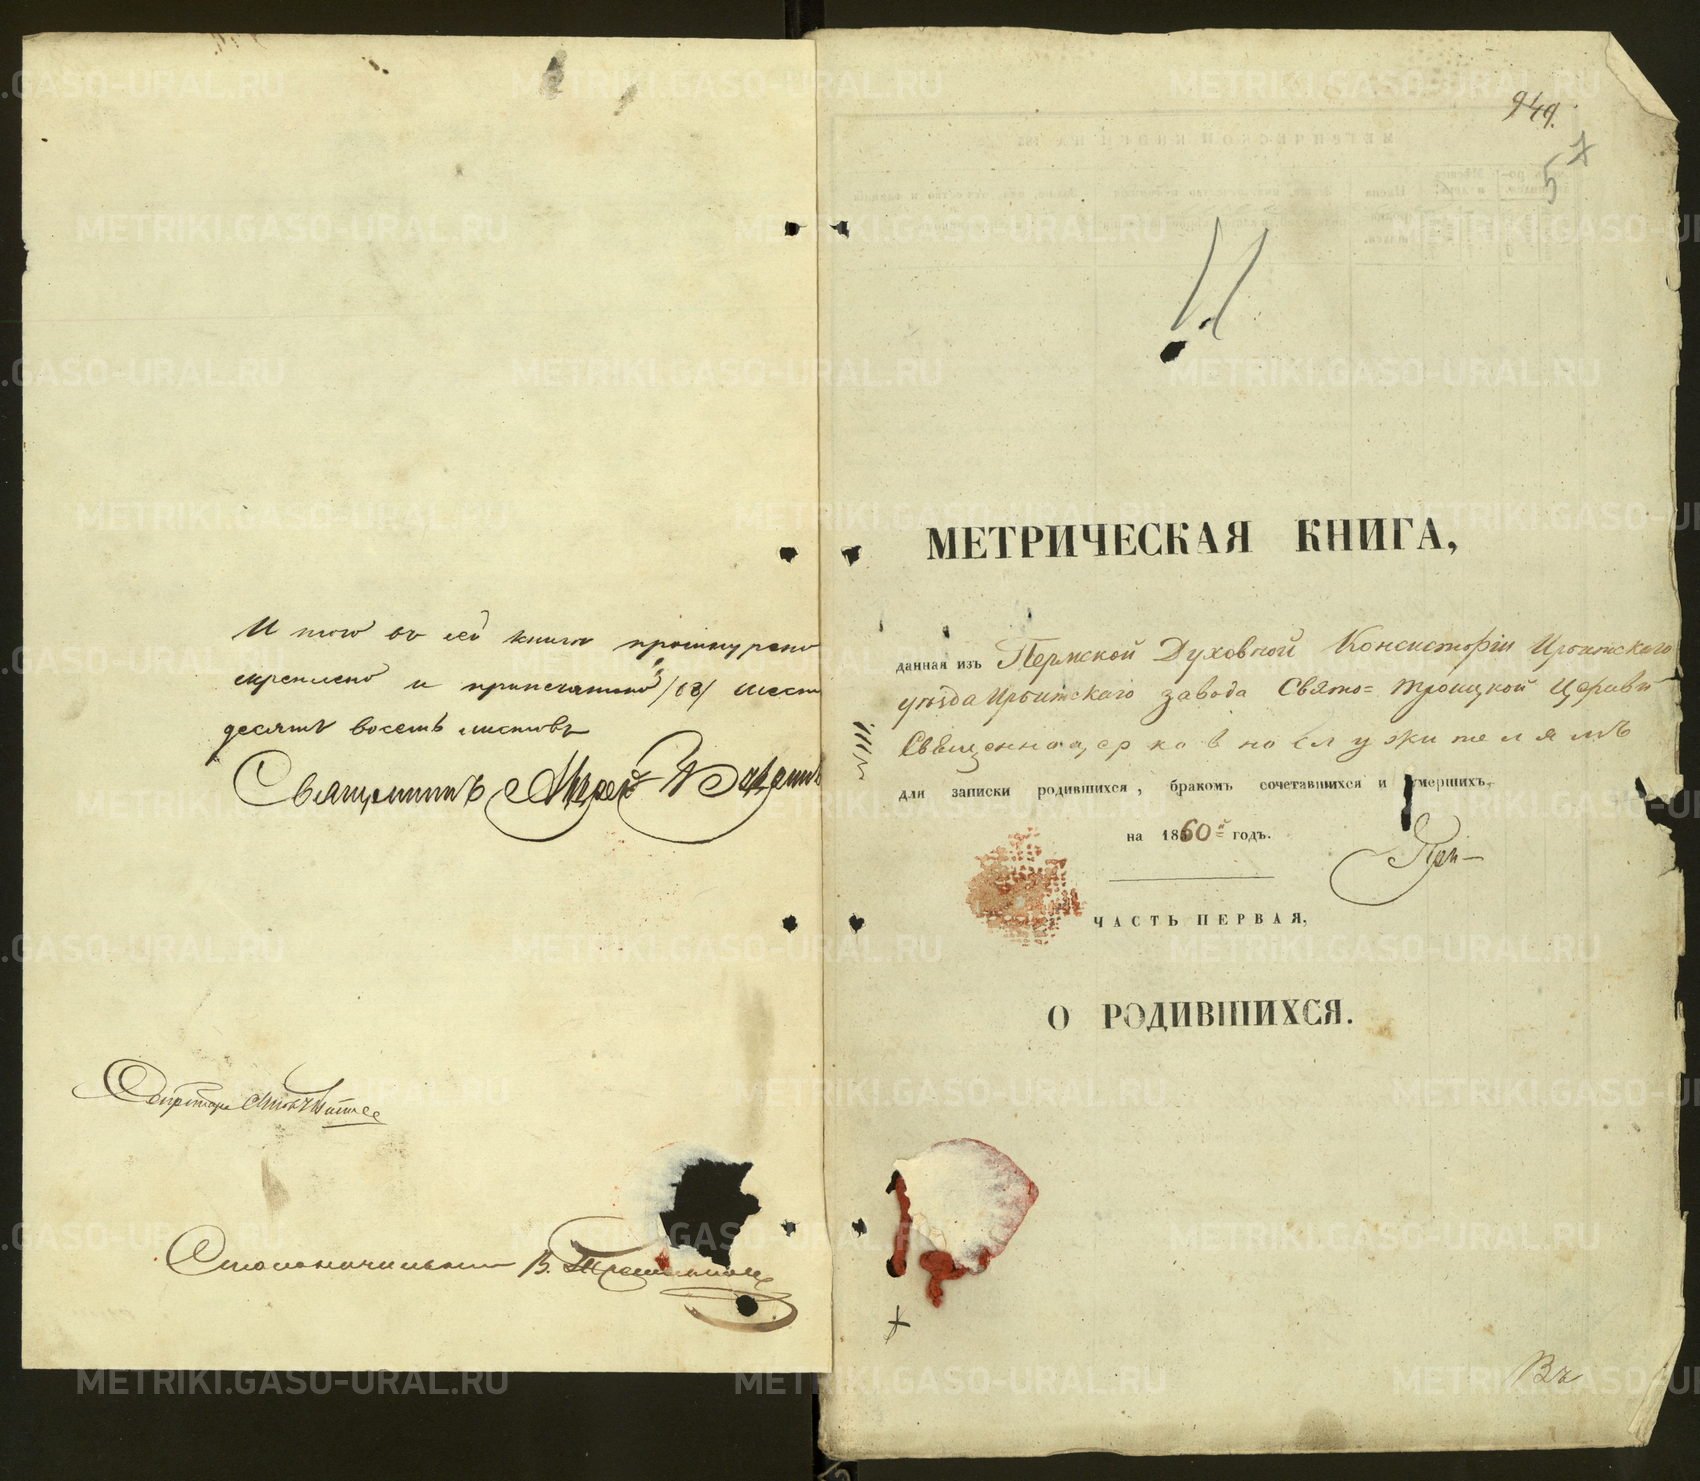 И того въ сей книгѣ прошнуровано
скреплено и припечатано /68/ шесть
десятъ восемь листовъ
Священникъ Андрей
Секретарь
Столоначальникъ В.
949.
5
МЕТРИЧЕСКАЯ КНИГА,
данная изъ Пермской Духовной Консисторіи Ирбитскаго
уѣзда Ирбитскаго завода Свято=Троицкой Церкви
Священноцерковнослужителямъ
для записки родившихся, бракомъ сочетавшихся и умершихъ,
на 1860й годъ.
ЧАСТЬ ПЕРВАЯ,
О РОДИВШИХСЯ.
Въ
METRIKI.GASO-URAL.RU